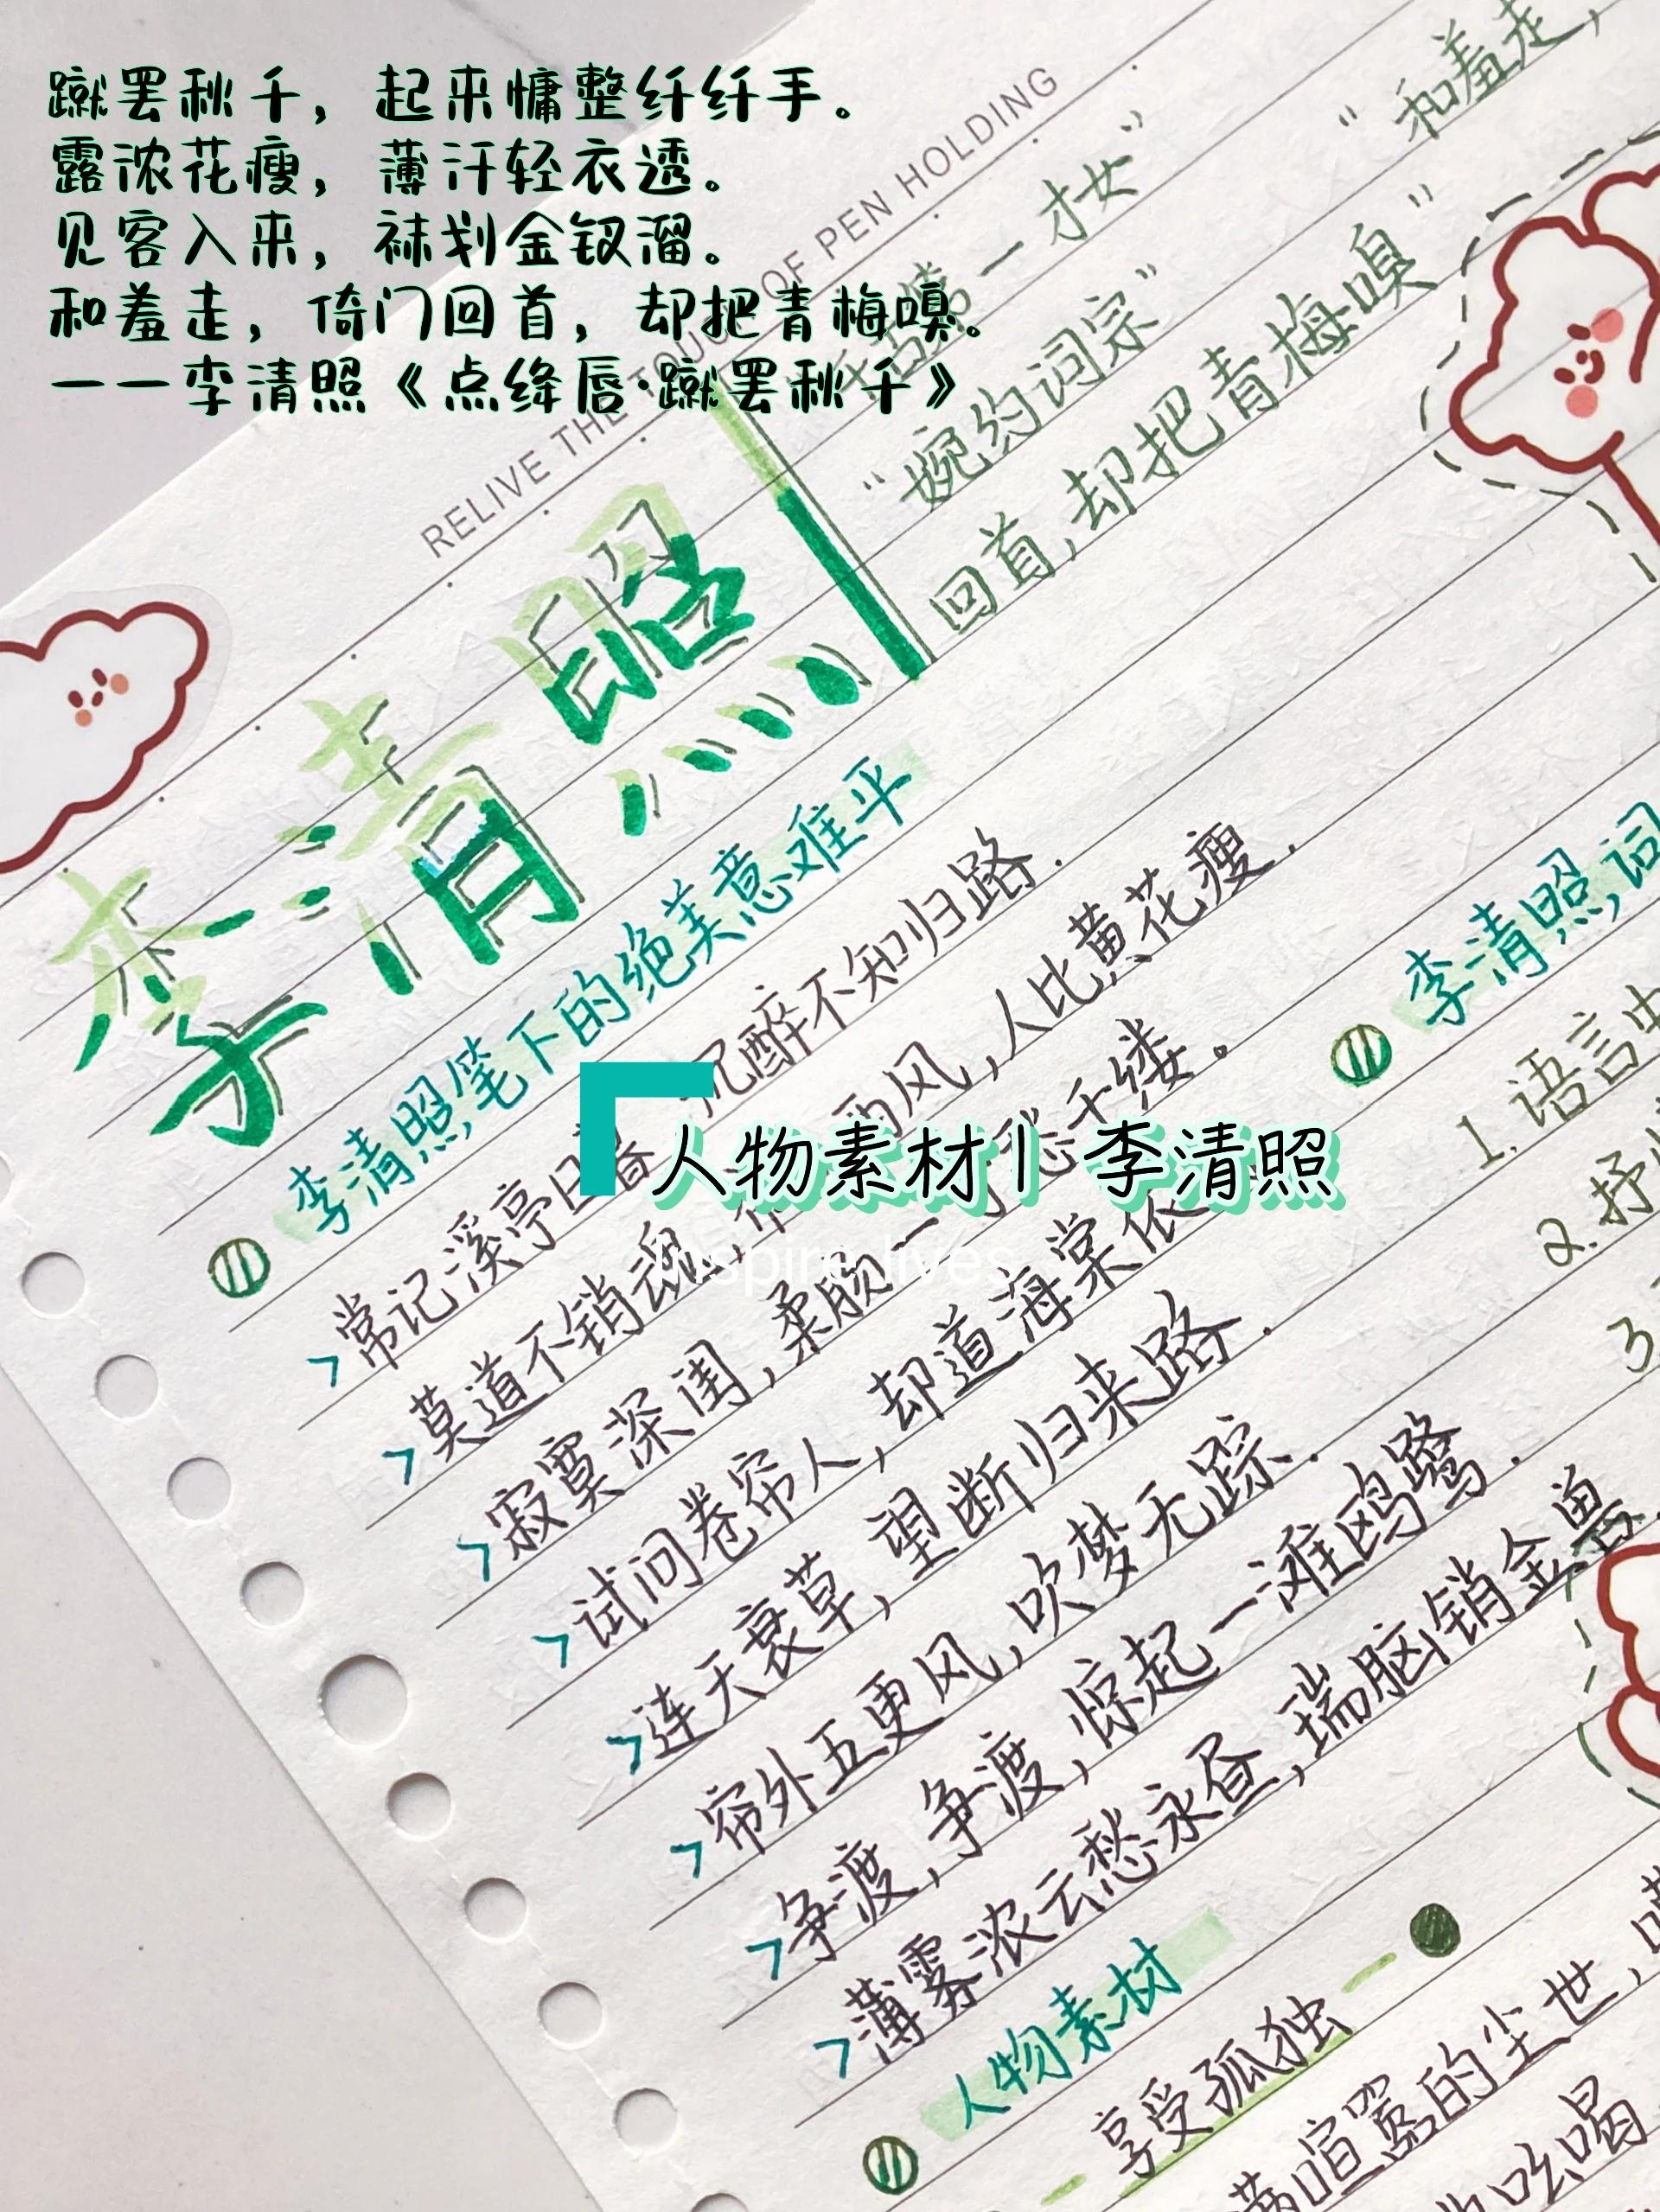 蹴罢秋千，起来慵整纤纤手。
露浓花瘦，薄汗轻衣透。
见客入来，袜刬金钗溜。
和羞走，倚门回首，却把青梅嗅。
——李清照《点绛唇·蹴罢秋千》
RELIVE THE TOUCH OF PEN HOLDING
李清照
千古第一才女”
“婉约词宗”
“和羞走，
回首，却把青梅嗅”
李清照笔下的绝美意难平
>常记溪亭日暮 沉醉不知归路.
>莫道不销魂，帘 西风，人比黄花瘦.
>寂寞深闺，柔肠一寸愁千缕。
>试问卷帘人，却道海棠依
>连天衰草，望断归来路.
>帘外五更风，吹梦无踪.
>争渡，争渡，惊起一滩鸥鹭.
>薄雾浓云愁永昼，瑞脑销金兽.
人物素材| 李清照
Inspire lives
李清照词
1.语言
2.抒
3.
人物素材
享受孤独
满喧嚣的尘世，
吆喝